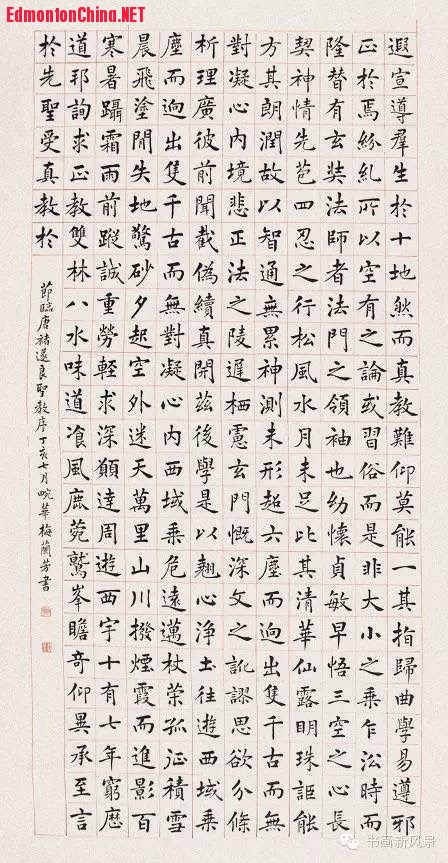 EdmontonChina.NET
遐宣導羣生於十地然而真教難仰莫能一其指歸曲學易遵邪
正於焉紛糺所以空有之論或習俗而是非大小之乘乍沿時而
隆替有玄奘法師者法門之領袖也幼懷貞敏早悟三空之心長
契神情先苞四忍之行松風水月未足比其清華仙露明珠詎能
方其朗潤故以智通無累神測未形超六塵而迥出隻千古而無
對凝心內境悲正法之陵遲栖慮玄門慨深文之訛謬思欲分條
析理廣彼前聞截偽續真開茲後學是以翹心淨土往遊西域乘
塵而迥出隻千古而無對凝心內西域乘危遠邁杖策孤征積雪
晨飛塗閒失地驚砂夕起空外迷天萬里山川撥煙霞而進影百
寒暑躡霜雨前蹤誠重勞輕求深願達周遊西宇十有七年窮歷
道邦詢求正教雙林八水味道飡風鹿菀鷲峯瞻奇仰異承至言
於先聖受真教於
節臨唐褚遂良聖教序丁亥七月畹華梅蘭芳書
书画新风景